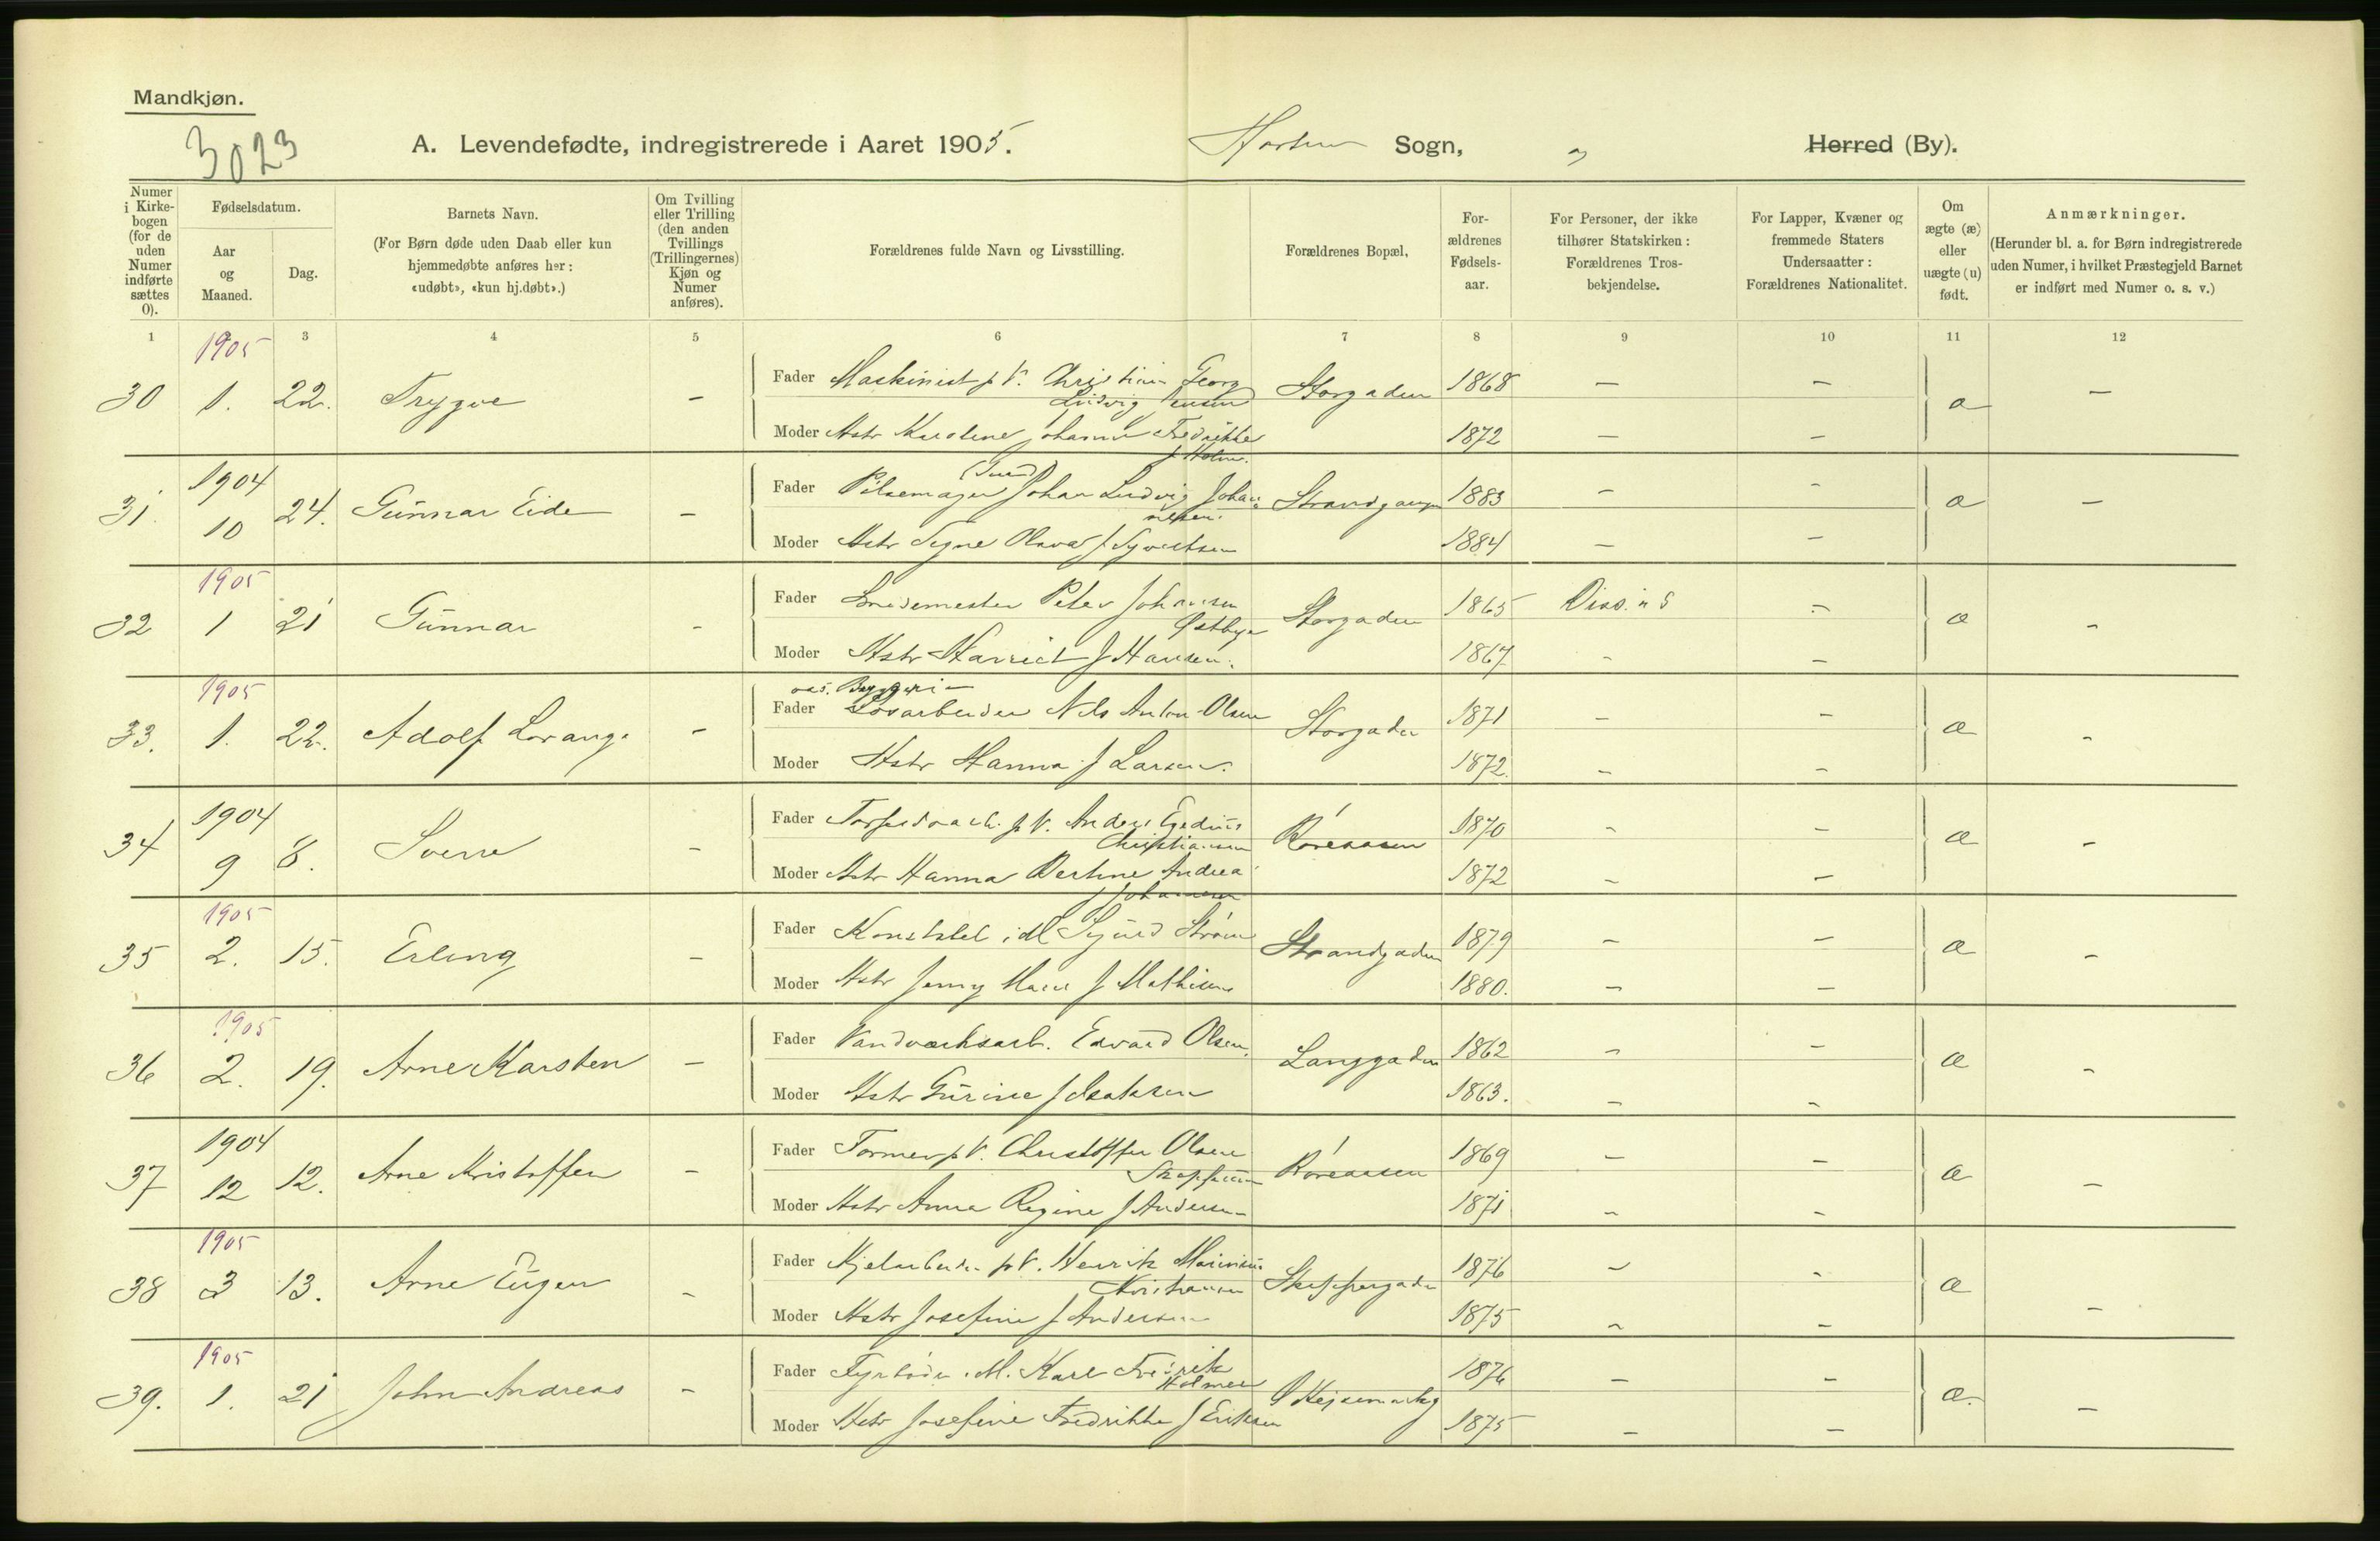 Mandkjøn.
3023
A. Levendefødte, indregistrerede i Aaret 1905. Horten Sogn, Herred (By).
Numer i Kirkebogen (for de uden Numer indførte sættes 0).
Fødselsdatum.
Aar og Maaned.
Dag.
Barnets Navn.
(For Børn døde uden Daab eller kun hjemmedøbte anføres her: «udøbt», «kun hj.døbt».)
Om Tvilling eller Trilling (den anden Tvillings (Trillingernes) Kjøn og Numer anføres).
Forældrenes fulde Navn og Livsstilling.
Forældrenes Bopæl.
Forældrenes Fødselsaar.
For Personer, der ikke tilhører Statskirken: Forældrenes Trosbekjendelse.
For Lapper, Kvæner og fremmede Staters Undersaatter: Forældrenes Nationalitet.
Om ægte (æ) eller uægte (u) født.
Anmærkninger.
(Herunder bl. a. for Børn indregistrerede uden Numer, i hvilket Præstegjeld Barnet er indført med Numer o. s. v.)
1 3 4 5 6 7 8 9 10 11 12
1905
30 1. 22. Trygve – Fader Maskinist p V. Christian Georg Ludvig Jensen Storgaden 1868 – – æ –
Moder Hstr Karoline Johanne Fredrikke f Holm. 1872 – –
1904
31. 10 24. Gunnar Eide – Fader Pølsemager Johan Ludvig Johannesen. Strandgaden 1883 – – æ –
Moder Hstr Signe Olava f Syvertsen 1884 – –
1905
32 1 21 Gunnar – Fader Smedemester Peter Johansen Østbye Storgaden 1865 Diss. – æ –
Moder Hstr Harriet f Hansen. 1867 – –
1905
33. 1. 22. Adolf Lorang – Bryggeri
Fader Løsarbeider Nils Anton Olsen Storgaden 1871 – – æ –
Moder Hstr Hanna f Larsen. 1872. – –
1904
34 9 8. Sverre – Fader p V. Anders Egedius Christiansen Røreaasen 1870 – – æ –
Moder Hstr Hanna Bertine Andrea f Johansen 1872 – –
1905
35 2. 15. Erling – Fader Konstabel i M Sigurd Strøm Strandgaden 1879 – – æ –
Moder Hstr Jenny Marie f Mathisen 1880. – –
1905
36 2. 19. Arne Karsten – Fader Vandværksarb. Edvard Olsen. Langgaden 1862 – – æ –
Moder Hstr Gurine f Isaksen 1863. – –
1904
37 12 12. Arne Kristoffer – Fader Former p V. Christoffer Olsen Skoppum Røreaasen 1869 – – æ –
Moder Hstr Anna Regine f Andersen 1871 – –
1905
38 3 13. Arne Eugen – Fader Kjelarbeider p V. Henrik Marinius Kristiansen Skippergaden 1876 – – æ –
Moder Hstr Josefine f Andersen 1875 – –
1905
39. 1. 21 John Andreas – Fader Fyrbøder i M. Karl Fredrik Holmen Kejsemarkg 1876 – – æ. –
Moder Hstr Josefine Fredrikke f Eriksen 1875 – –